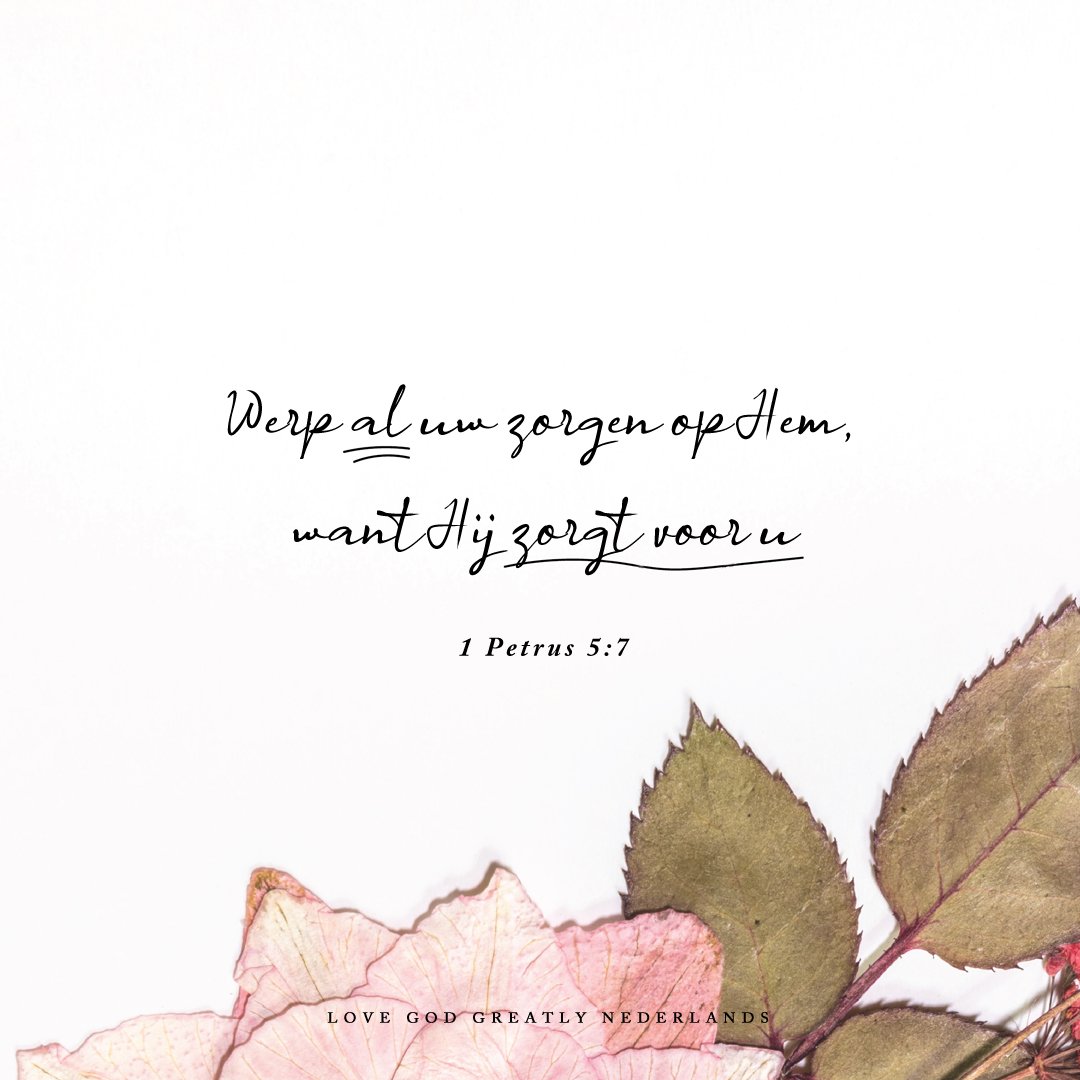 Werp al uw zorgen op Hem,
want Hij zorgt voor u
1 Petrus 5:7
LOVE GOD GREATLY NEDERLANDS